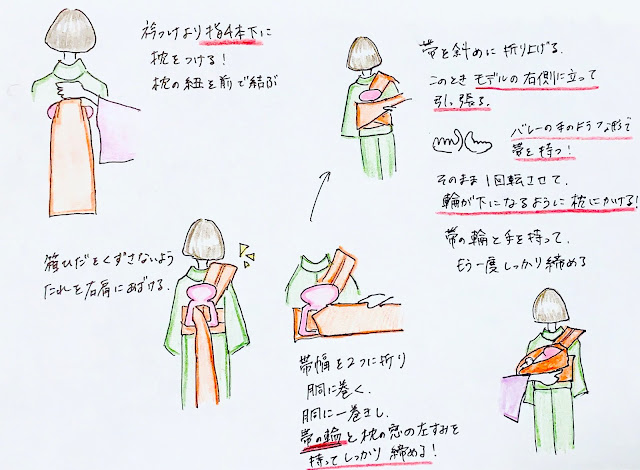 衿つけより指4本下に
枕をつける！
枕の紐を前で結ぶ
箱ひだをくずさないよう
たれを右肩にあずける.
帯幅を2つに折り
胴に巻く.
胴に一巻きし.
帯の輪と枕の窓の左すみを
持ってしっかり締める！
帯を斜めに折り上げる.
このときモデルの右側に立って
引っ張る.
バレーの手のような形で
帯を持つ！
そのまま1回転させて.
輪が下になるように枕にかける！
帯の輪と手を持って.
もう一度しっかり締める